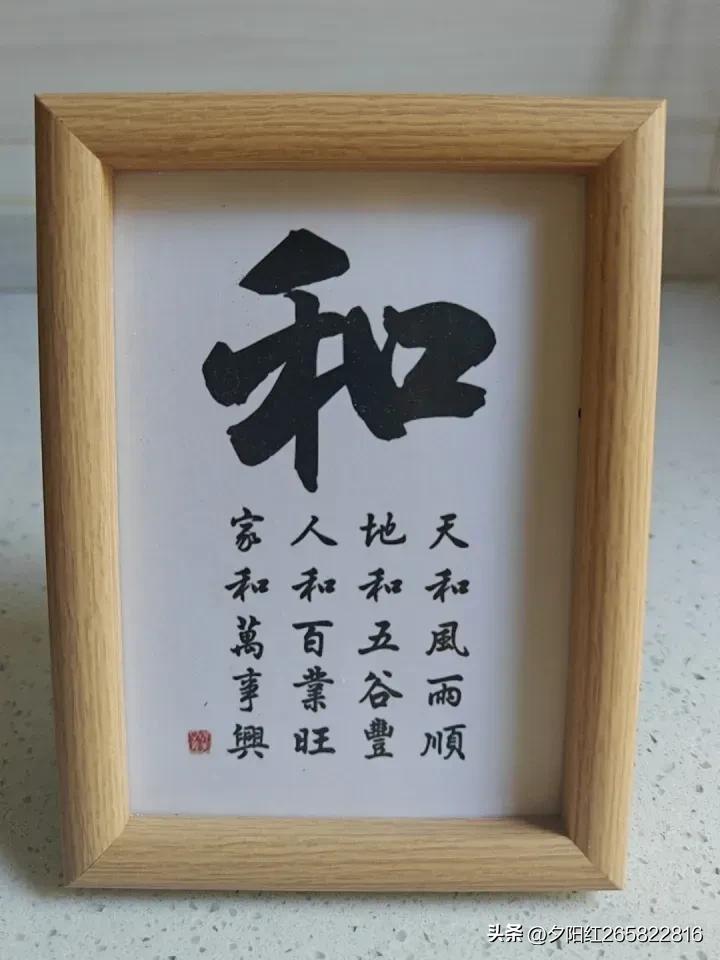 和
天和風雨順
地和五谷豐
人和百業旺
家和萬事興
头条 @夕阳红265822816